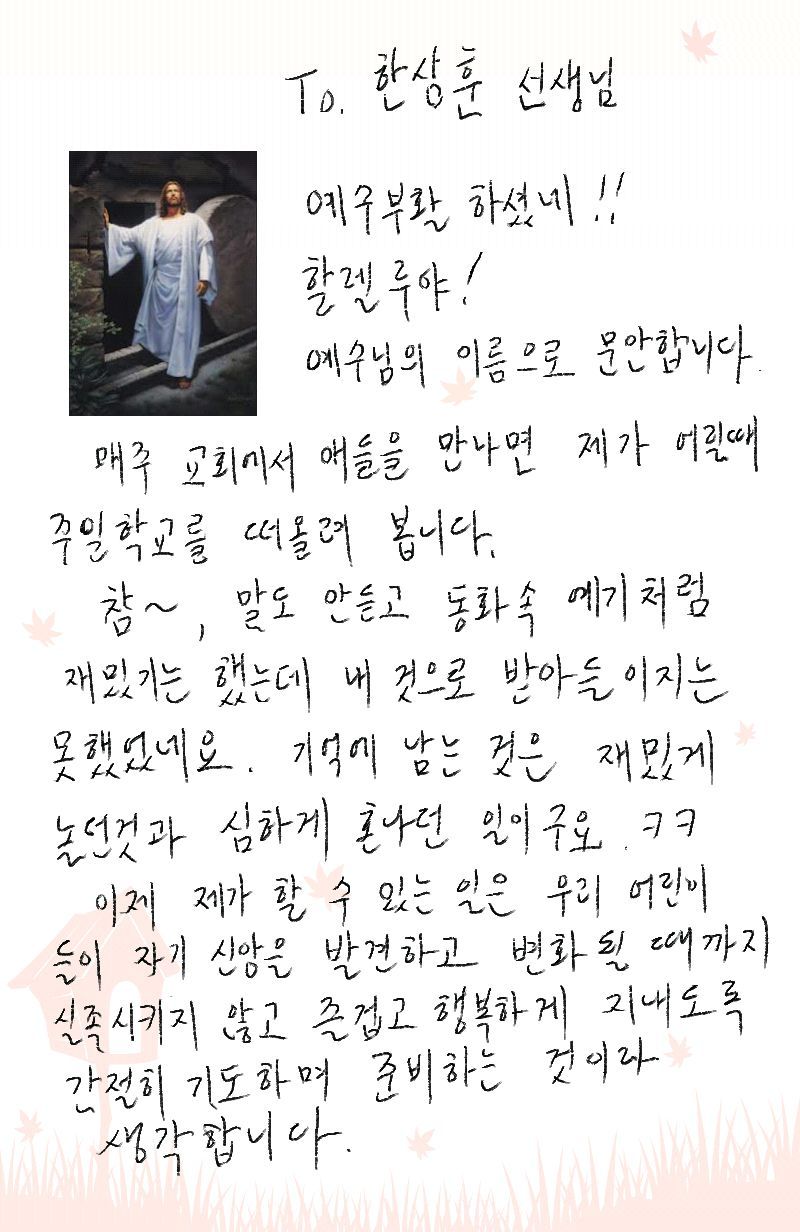 To. 한상훈 선생님
예수부활 하셨네!!
할렐루야!
예수님의 이름으로 문안합니다.
매주 교회에서 애들을 만나면 제가 어릴때
주일학교를 떠올려 봅니다.
참~, 말도 안듣고 동화속 얘기처럼
재밌기는 했는데 내 것으로 받아들이지는
못했었네요. 기억에 남는 것은 재밌게
놀던것과 심하게 혼나던 일이구요. ㅋㅋ
이제 제가 할 수 있는 일은 우리 어린이
들이 자기 신앙을 발견하고 변화될 때까지
실족시키지 않고 즐겁고 행복하게 지내도록
간절히 기도하며 준비하는 것이라
생각합니다.